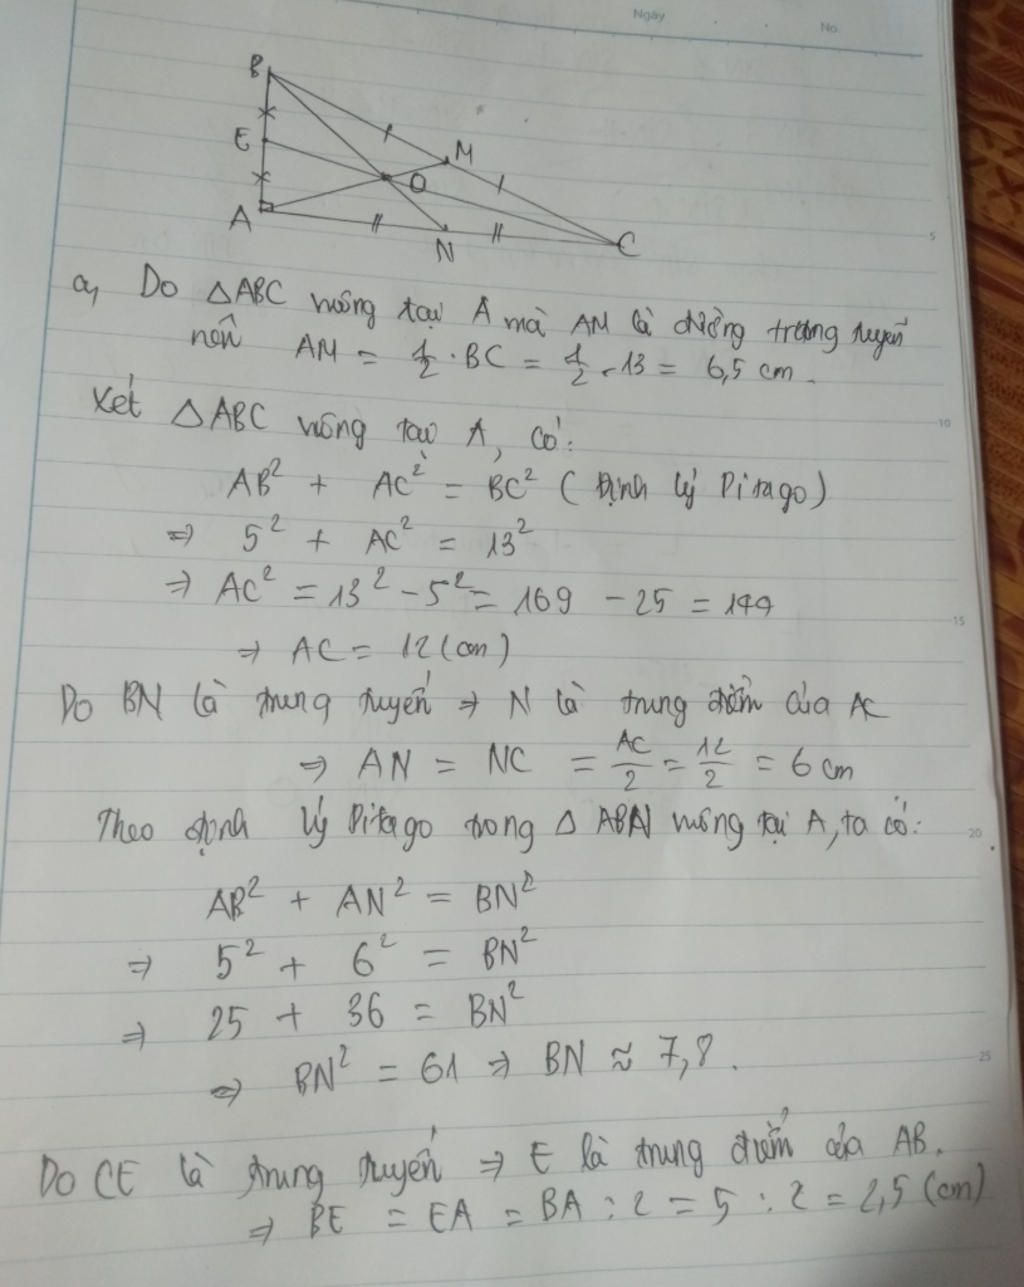 Ngày
No.
B
E
M
O
A
N
C
5
a, Do △ABC vuông tại A mà AM là đường trung tuyến
nên AM = 1/2 . BC = 1/2 . 13 = 6,5 cm.
Xét △ABC vuông tại A, có:
10
AB² + AC² = BC² (Định lý Pitago)
⇒ 5² + AC² = 13²
⇒ AC² = 13² - 5² = 169 - 25 = 144
15
⇒ AC = 12 (cm)
Do BN là trung tuyến ⇒ N là trung điểm của AC
⇒ AN = NC = AC/2 = 12/2 = 6 cm
Theo định lý Pitago trong △ ABN vuông tại A, ta có:
20
AB² + AN² = BN²
⇒ 5² + 6² = BN²
⇒ 25 + 36 = BN²
⇒ BN² = 61 ⇒ BN ≈ 7,8.
25
Do CE là trung tuyến ⇒ E là trung điểm của AB.
⇒ BE = EA = BA : 2 = 5 : 2 = 2,5 (cm)